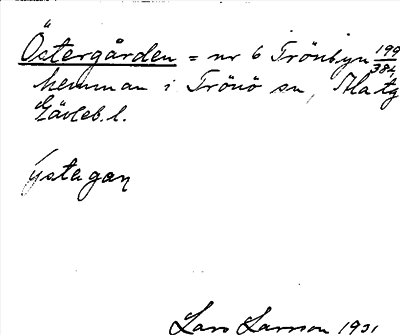 Östergården = nr 6 Trönbyn 199/384
hemman i Trönö sn, Ala tg
Gävleb. l.
ystagaṇ
Lars Larsson 1931